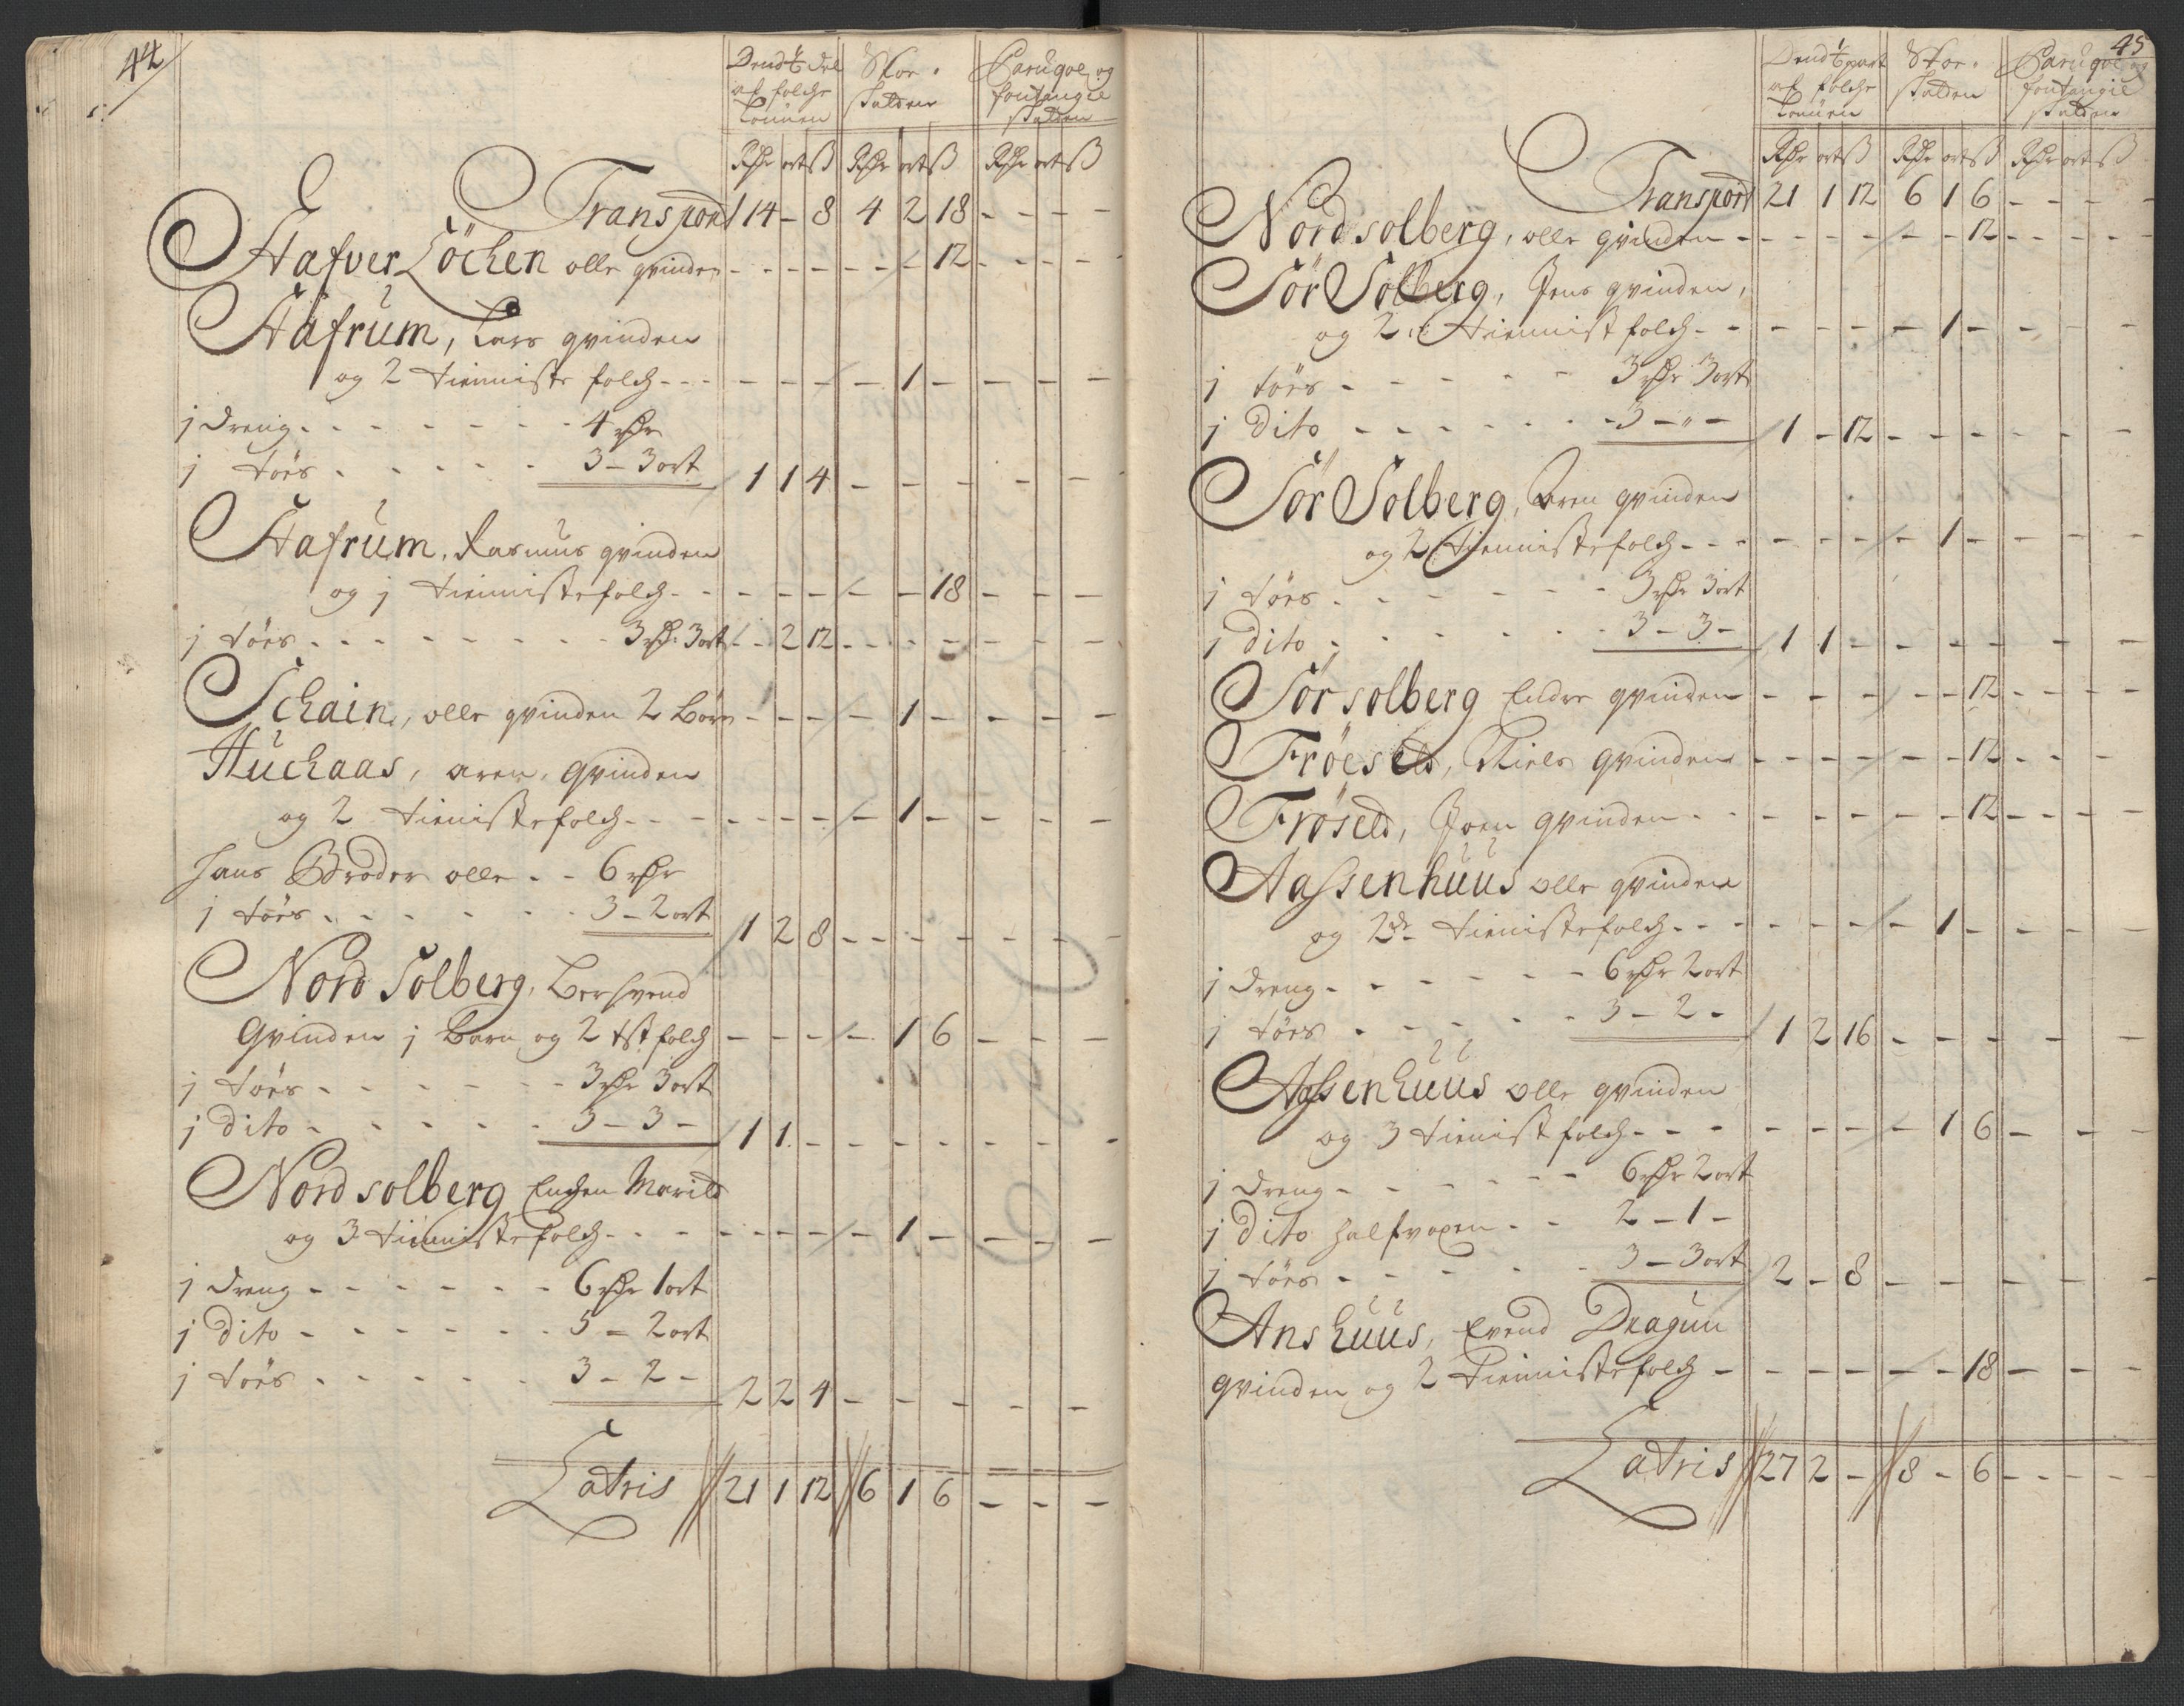 44
Dend 1/6 del af folche Lönnen | Skoe skatden | Paruqve og fontangie skatden
Rdr ort ß | Rdr ort ß | Rdr ort ß
Transport 14 - 8 4 2 18 - - -
Hafver Löchen olle qvinden - - - - - 12 - - -
Hafrum, Lars qvinden
og 2 tienniste folch - - - - 1 - - - -
j dreng - - - 4 rdr
j töes - - - 3 - 3 ort 1 1 4 - - - - -
Hafrum, Rasmus qvinden
og j tiennistefolch - - - - - 18 - - -
j töes - - - 3 rdr 3 ort - 2 12 - - - - - -
Schain, olle qvinden 2 börn - - - - 1 - - - -
Huchaas, aren, qvinden
og 2 tienistefolch - - - - 1 - - - -
hans Broder olle - - 6 rdr
j töes - - - 3 - 2 ort 1 2 8 - - - - - -
Nord Solberg, Bersvend
qvinden j barn og 2 tstfolch - - - - 1 6 - - -
j töes - - - 3 rdr 3 ort
j dito - - - 3 - 3 - 1 1 - - - - - -
Nord solberg Enchen Marild
og 3 tiennistefolch - - - - 1 - - - -
j dreng - - - 6 rdr 1 ort
j dito - - - 5 - 2 ort
j töes - - - 3 - 2 - 2 2 4 - - - - -
Latris 21 1 12 6 1 6 - - -
45
Dend 1/6 part af folche Lönnen | Skoe skatden | Paruqve og fontangie skatden
Rdr ort ß | Rdr ort ß | Rdr ort ß
Transport 21 1 12 6 1 6 - - -
Nord solberg, olle qvinden - - - - - 12 - - -
Sör Solberg, Jens qvinden,
og 2 tiennist folch - - - - 1 - - - -
j töes - - - 3 rdr 3 ort
j dito - - - 3 - " - 1 - 12 - - - - - -
Sör Solberg, Aren qvinden
og 2 tiennistefolch - - - - 1 - - - -
j töes - - - 3 rdr 3 ort
j dito - - - 3 - 3 - 1 1 - - - - - -
Sör solberg Endre qvinden - - - - - 12 - - -
Fröeseld, Niels qvinden - - - - - 12 - - -
Fröseld, Joen qvinden - - - - - 12 - - -
Aassenhuus olle qvinden
og 2de tienistefolch - - - - 1 - - - -
j dreng - - - 6 rdr 2 ort
j töes - - - 3 - 2 - 1 2 16 - - - - -
Aassenhuus olle qvinden
og 3 tienist folch - - - - 1 6 - - -
j dreng - - - 6 rdr 2 ort
j dito halfvoxen - - 2 - 1 -
j töes - - - 3 - 3 ort 2 - 8 - - - - -
Anshuus, Evend Dragun
qvinden og 2 tiennistefolch - - - - - 18 - - -
Latris 27 2 - 8 - 6 - - -